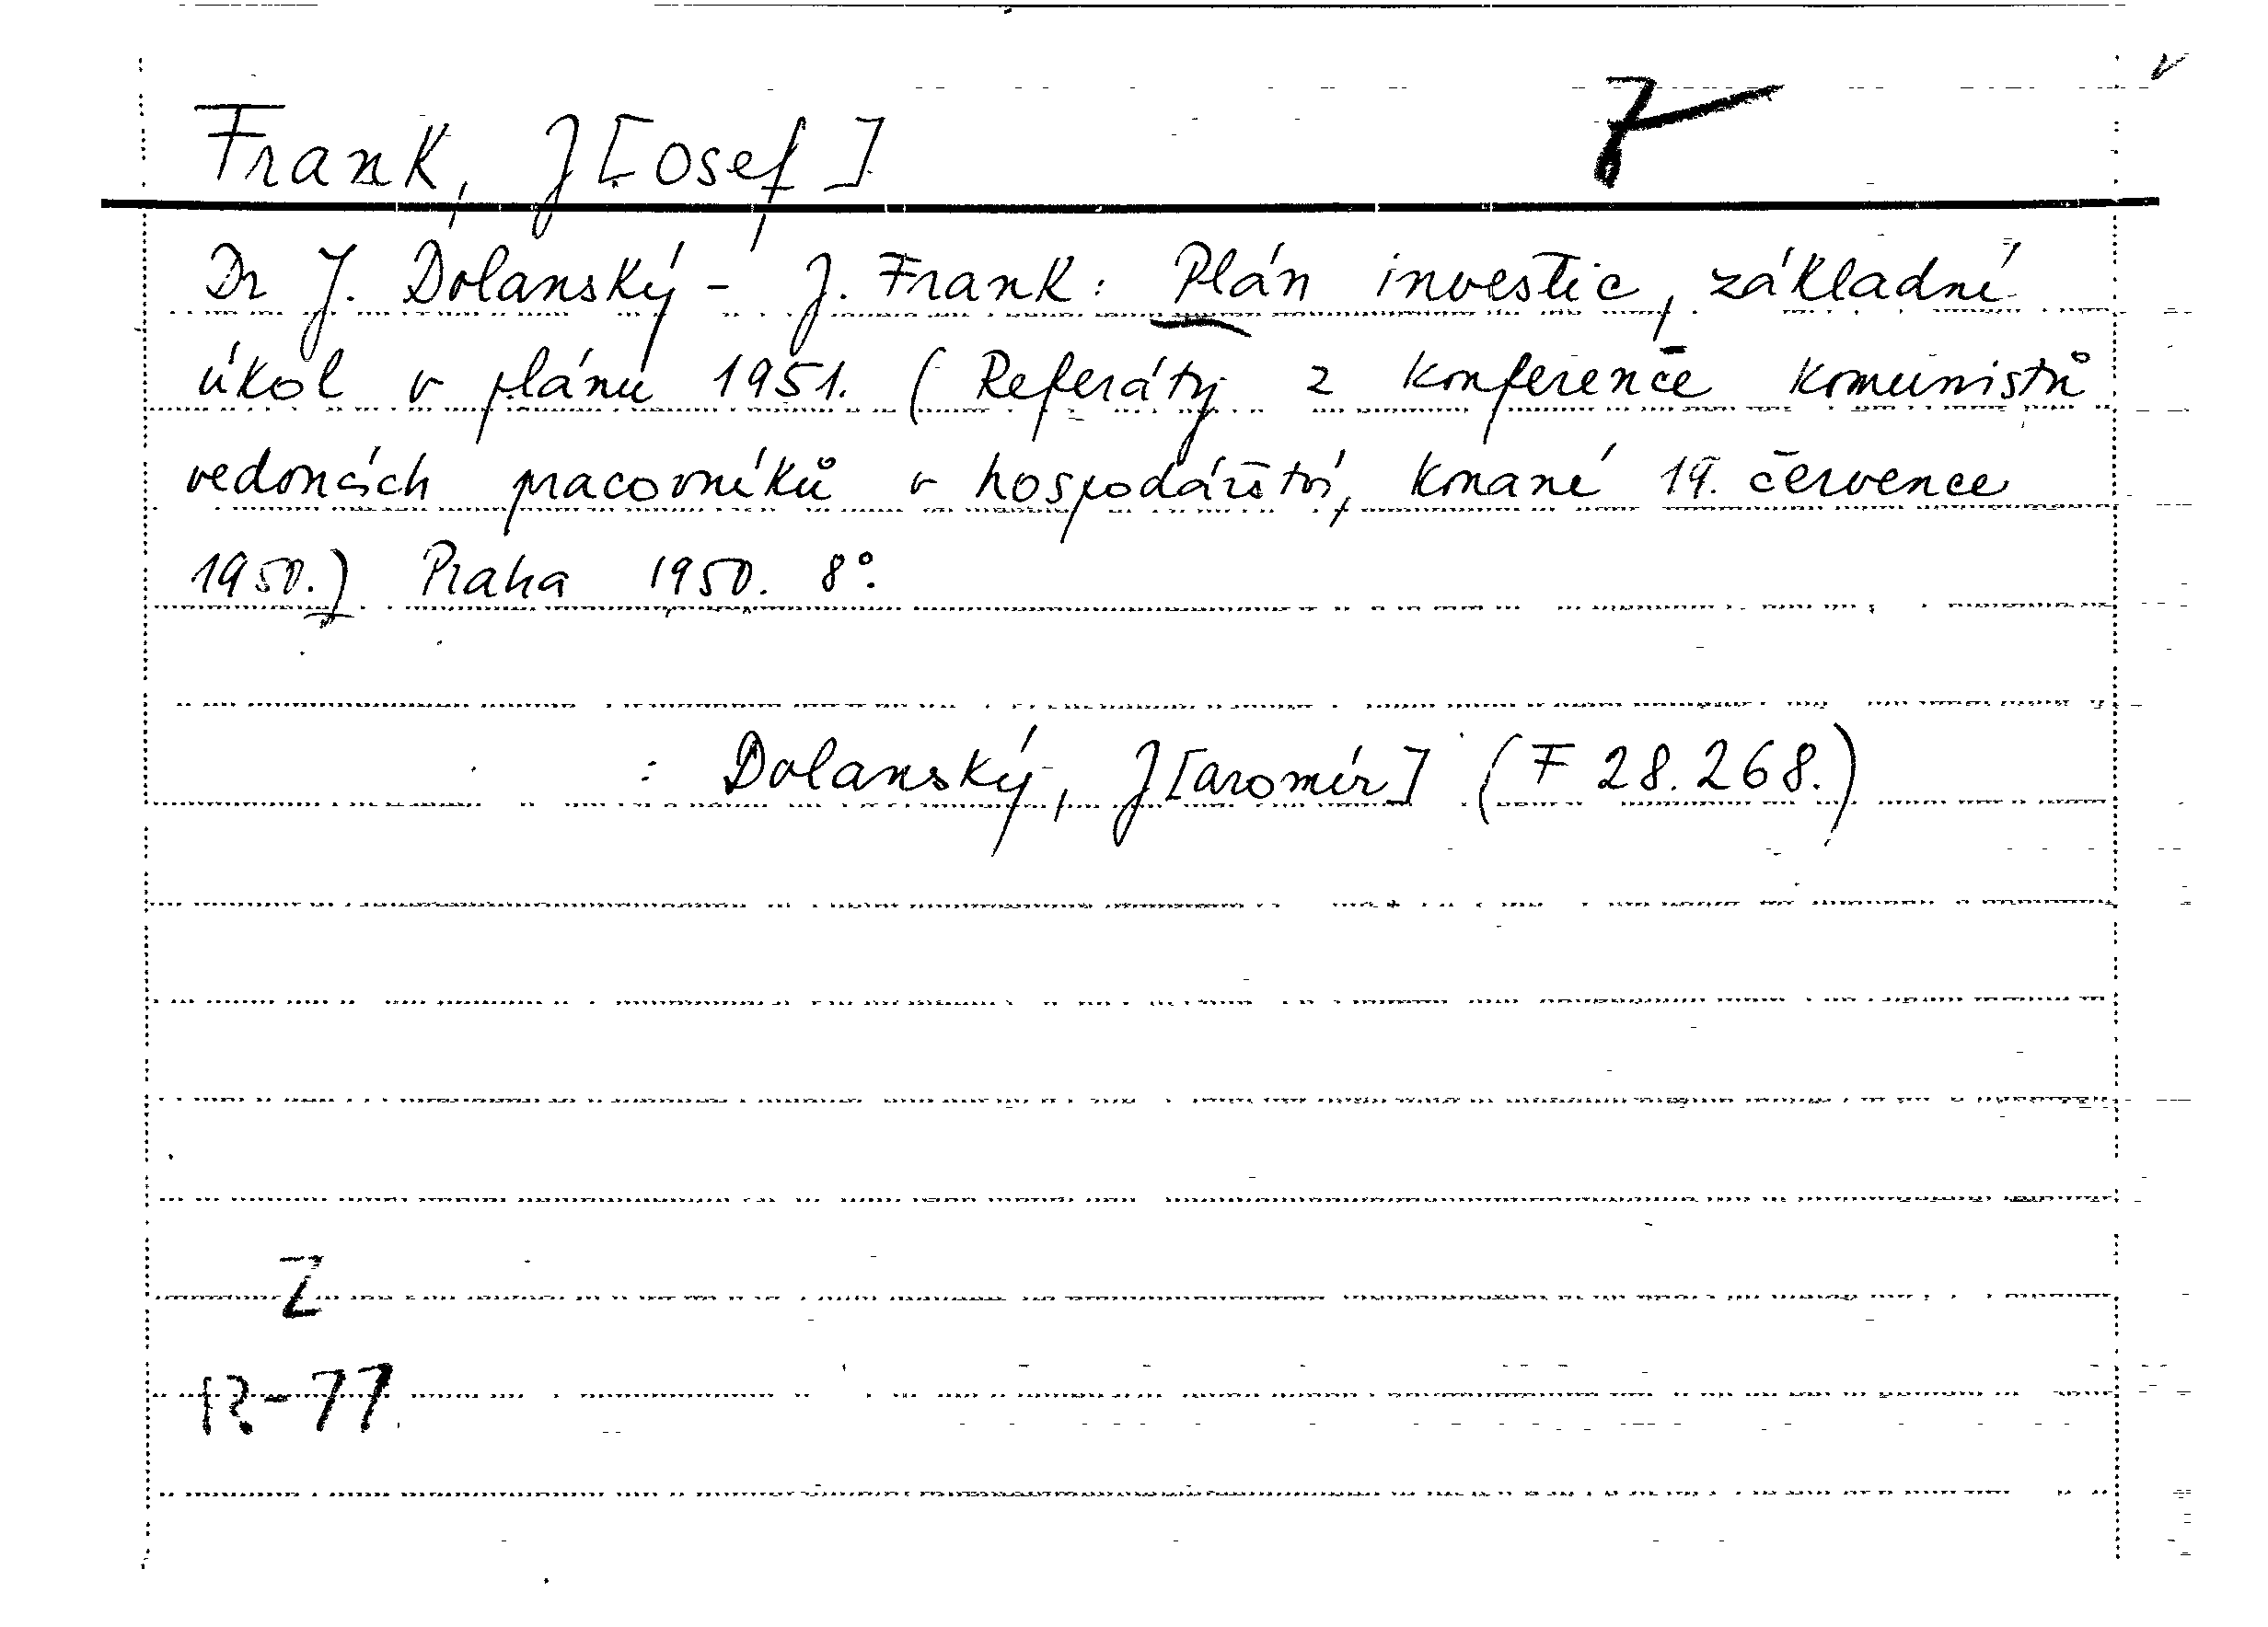 Frank, J[osef] 7
Dr J. Dolanský - J. Frank: Plán investic, základní
úkol v plánu 1951. (Referáty z konference komunistů
vedoucích pracovníků v hospodářství, konané 19. července
1950.) Praha 1950. 8°.
: Dolanský, J[aromír] (F 28.268.)
Z
12-77